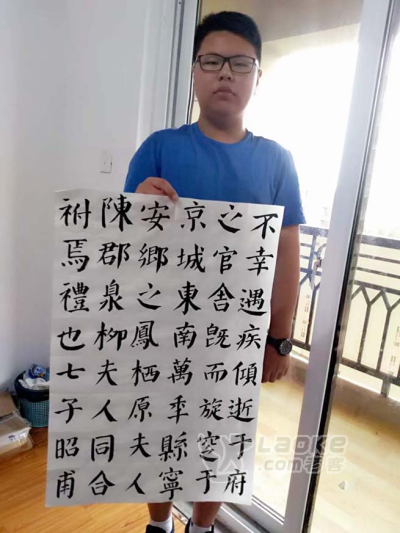 不幸遇疾傾逝于府
之官舍既而旋窆于
京城東南萬年縣寧
安鄉之鳳栖原夫人
陳郡泉柳夫人同合
祔焉禮也七子昭甫
Laoke
.com老客